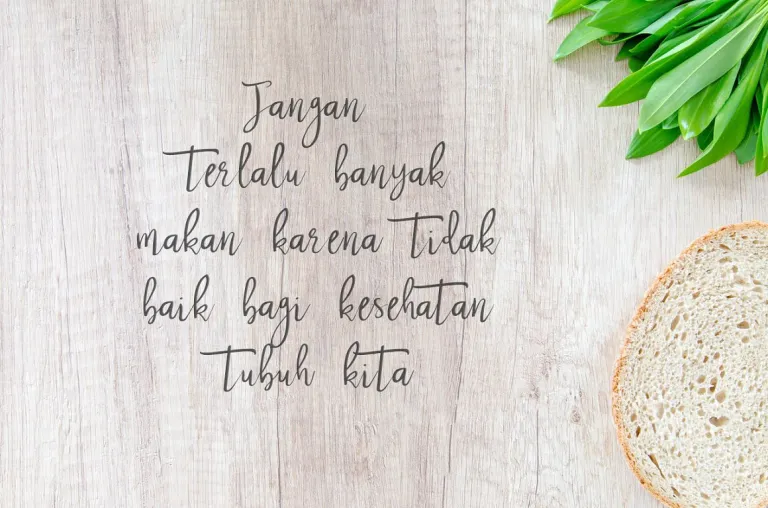 Jangan
Terlalu banyak
makan karena Tidak
baik bagi kesehatan
Tubuh kita